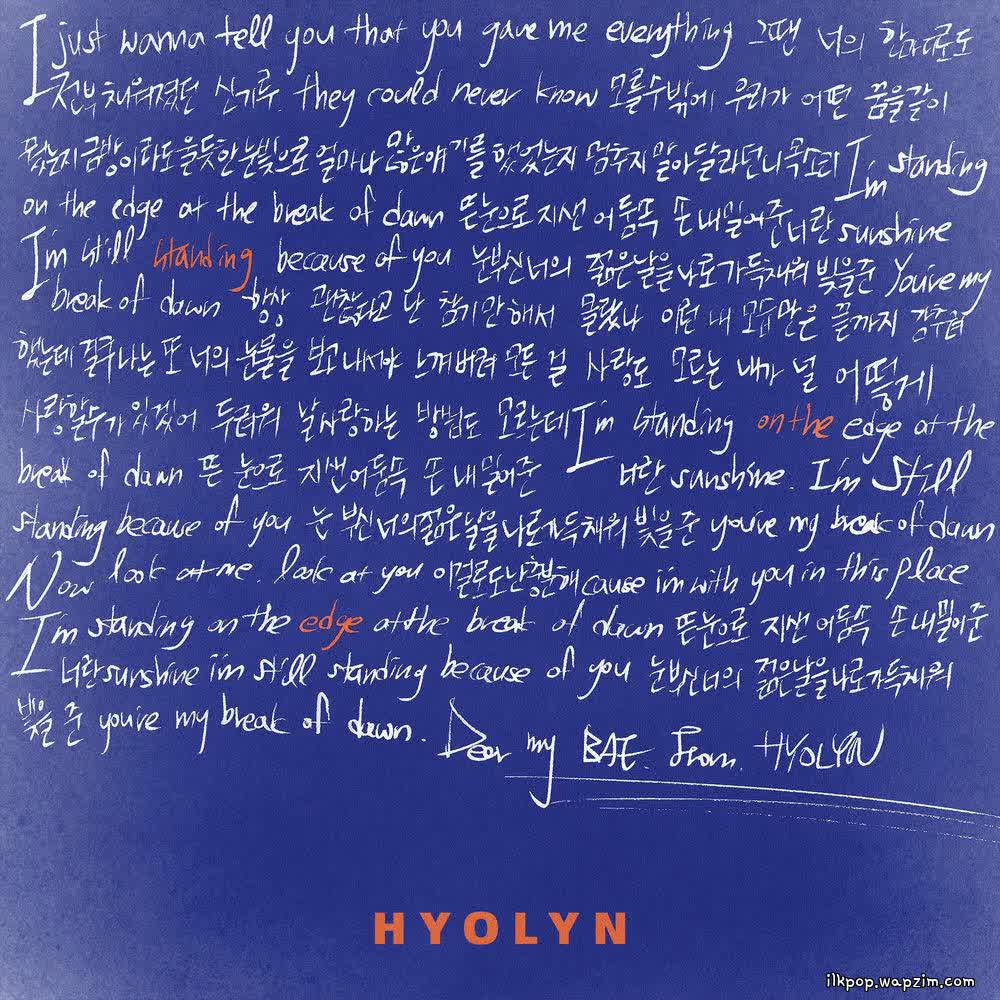 I just wanna tell you that you gave me everything 그땐 너의 한마디로도
전부 채워졌던 신기루. they could never know 모를수밖에 우리가 어떤 꿈을같이
꿨는지 금방이라도 울듯한 눈빛으로 얼마나 많은얘기를 했었는지 멈추지 말아달라던 니 목소리 I'm standing
on the edge at the break of dawn 뜬눈으로 지샌 어둠속 손 내밀어준 너란 sunshine
I'm still standing because of you 눈부신 너의 젊은날을 나로 가득채워 빛을준 You're my
break of dawn 항상 괜찮다고 난 참기만해서 몰랐나 이런 내 모습만은 끝까지 감추려
했는데 결국 나는 또 너의 눈물을 보고 내서야 느껴버려 모든 걸 사랑도 모르는 내가 널 어떻게
사랑할수가 있겠어 두려워 날 사랑하는 방법도 모르는데 I'm standing on the edge at the
break of dawn 뜬 눈으로 지샌어둠속 손 내밀어준 너란 sunshine. I'm Still
standing because of you 눈 부신 너의 젊은날을 나로가득채워 빛을 준 you're my break of dawn
Now look at me. look at you 이걸로도 난 충분해 cause i'm with you in this place
I'm standing on the edge at the break of dawn 뜬눈으로 지샌 어둠속 손 내밀어준
너란 sunshine i'm still standing because of you 눈부신너의 젊은날을 나로가득채워
빛을 준 you're my break of dawn. Dear my BAE. From. HYOLYN
HYOLYN
ilkpop.wapzim.com